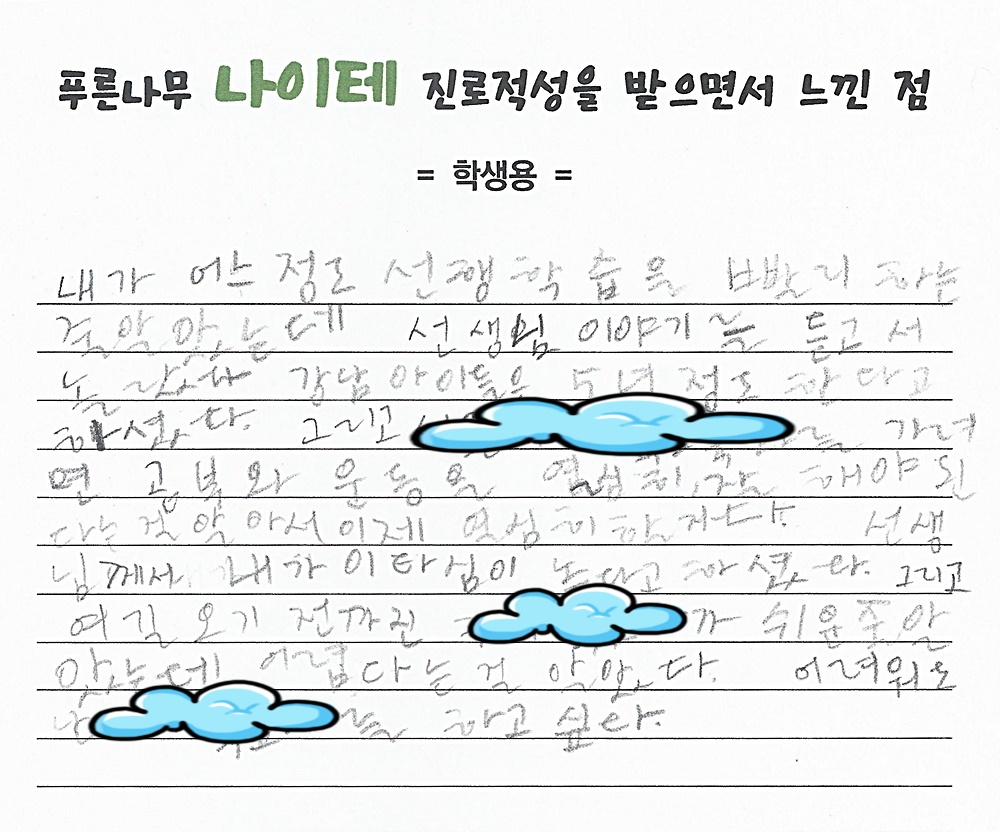 푸른나무 나이테 진로적성을 받으면서 느낀 점
= 학생용 =
내가 어느정도 선행학습을 빠빨리 하는
걸 알았는데 선생님 이야기를 듣고서
놀랐다 강남 아이들은 5년 정도 한다고
하셨다. 그리고 가려
면 공부와 운동을 열심히, 잘 해야 된
다는 걸 알아서 이제 열심히 할 거다. 선생
님께서 내가 이타심이 높다고 하셨다. 그리고
여길 오기 전까진 가 쉬운줄 알
았는데 어렵다는 걸 알았다. 어려워도
를 하고 싶다.